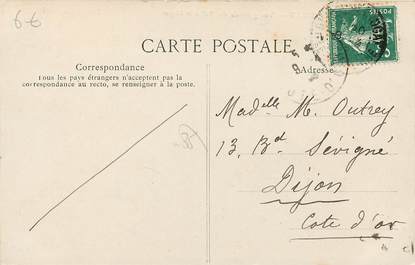 6-€
CARTE POSTALE
Correspondance
Tous les pays étrangers n'acceptent pas la
correspondance au recto, se renseigner à la poste.
Adresse
POSTES
Madelle M. Outrey
13, Bd Sévigné
Dijon
Cote d'or